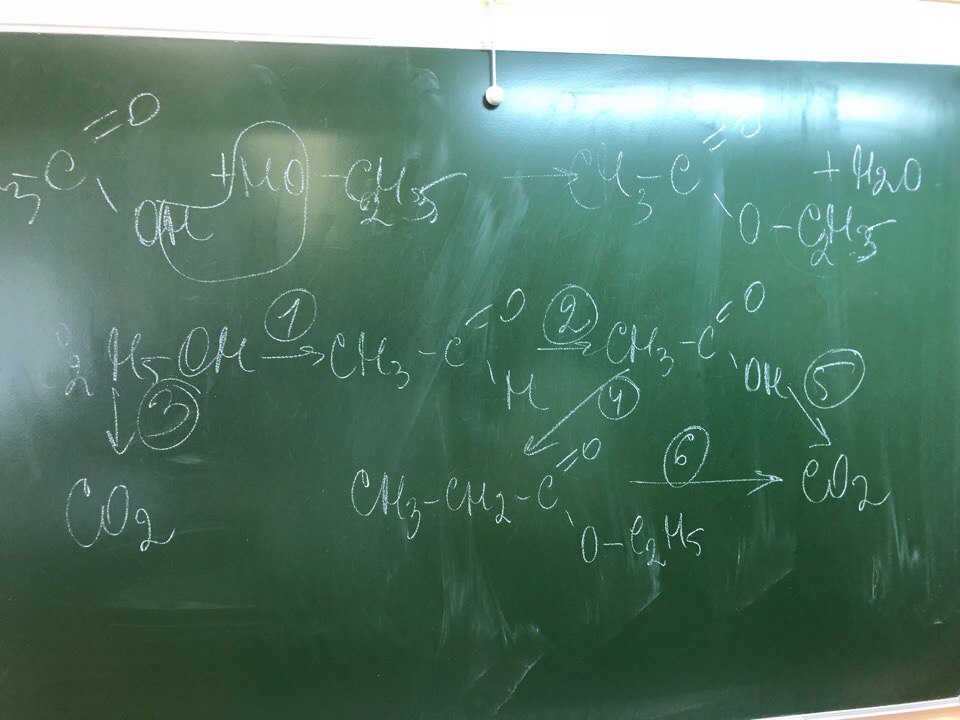 3 C =O \ OH + HO - C2H5 → CH3 - C =O \ O - C2H5 + H2O
C2H5OH → 1 CH3 - C =O \ H → 2 CH3 - C =O \ OH
3 4 5
CO2 CH3-CH2-C =O \ O-C2H5 → 6 CO2